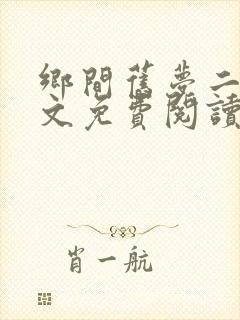 鄉間舊夢二
文免費閱讀
肖一航